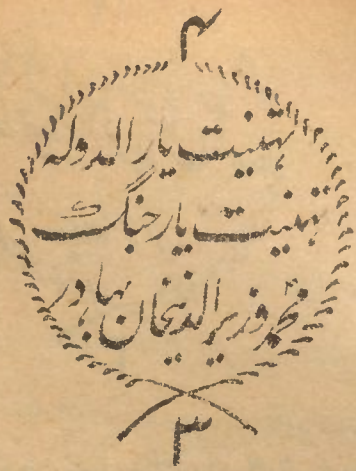 ۴
تہنیت یار الدولہ
تہنیت یار جنگ
محمد وزیر الدینخان بہادر
۳